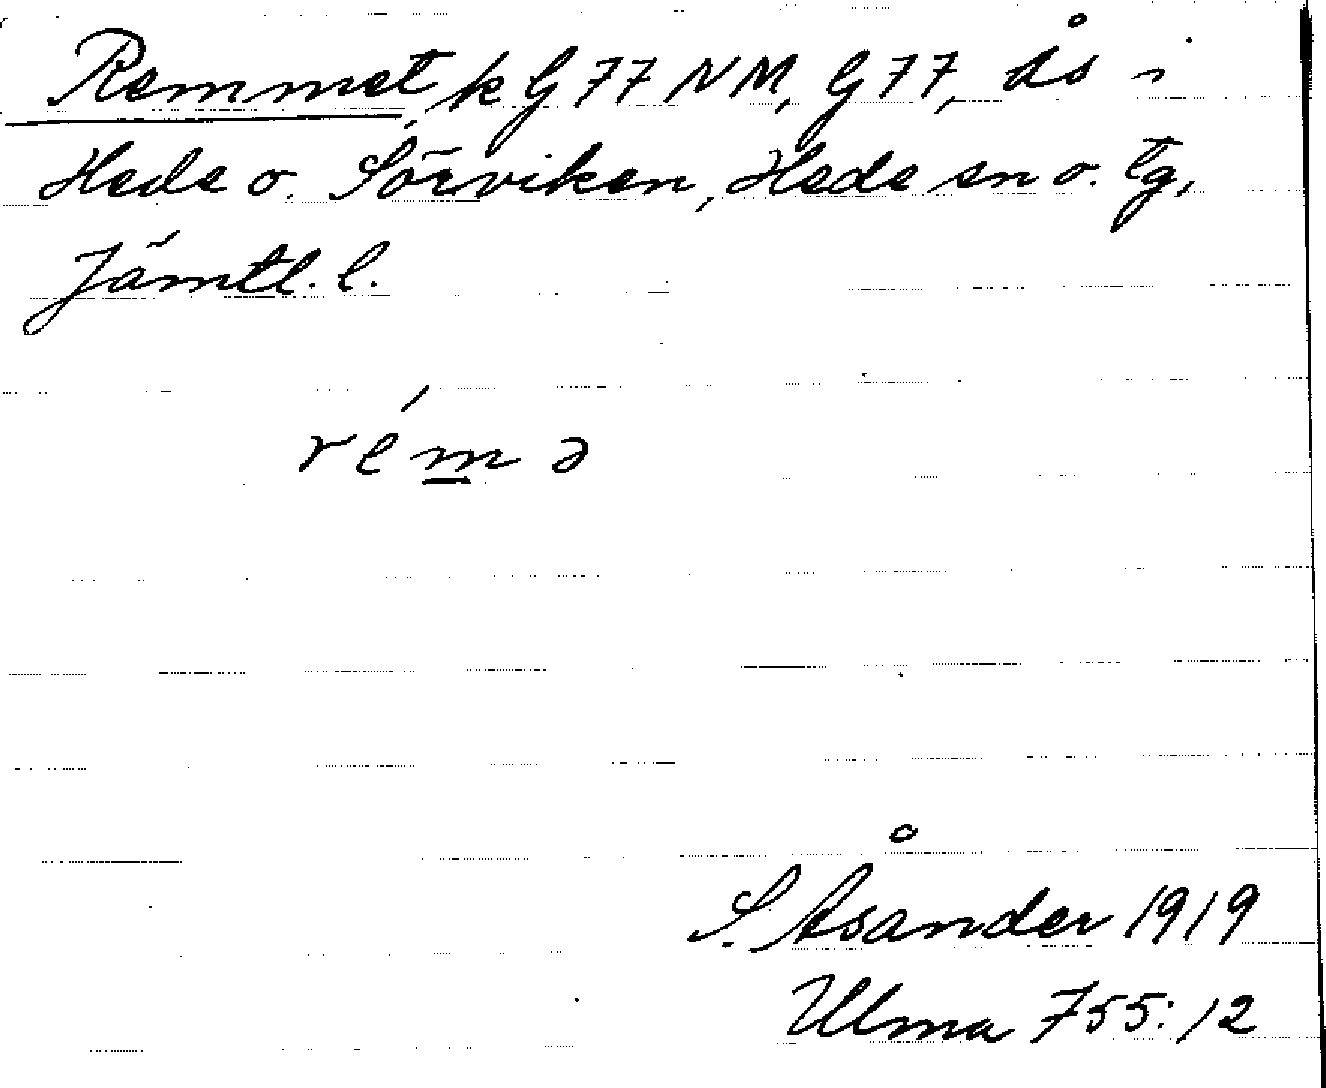 Remmet, k G 77 NM, G 77, ås i
Hede o. Sörviken, Hede sn o. tg,
Jämtl. l.
rém̲ə
S. Åsander 1919
Ulma 755:12